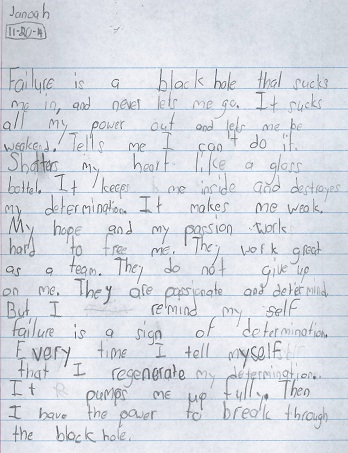 Janoah
11-20-14
Failure is a black hole that sucks
me in, and never lets me go. It sucks
all my power out and lets me be
weakend. Tells me I can't do it.
Shatters my heart like a glass
bottel. It keeps me inside and destroyes
my determination. It makes me weak.
My hope and my passion work
hard to free me. They work great
as a team. They do not give up
on me. They are passionate and determind.
But I remind my self
failure is a sign of determination.
Every time I tell myself
that I regenerate my determination.
It pumps me up fully. Then
I have the power to break through
the black hole.